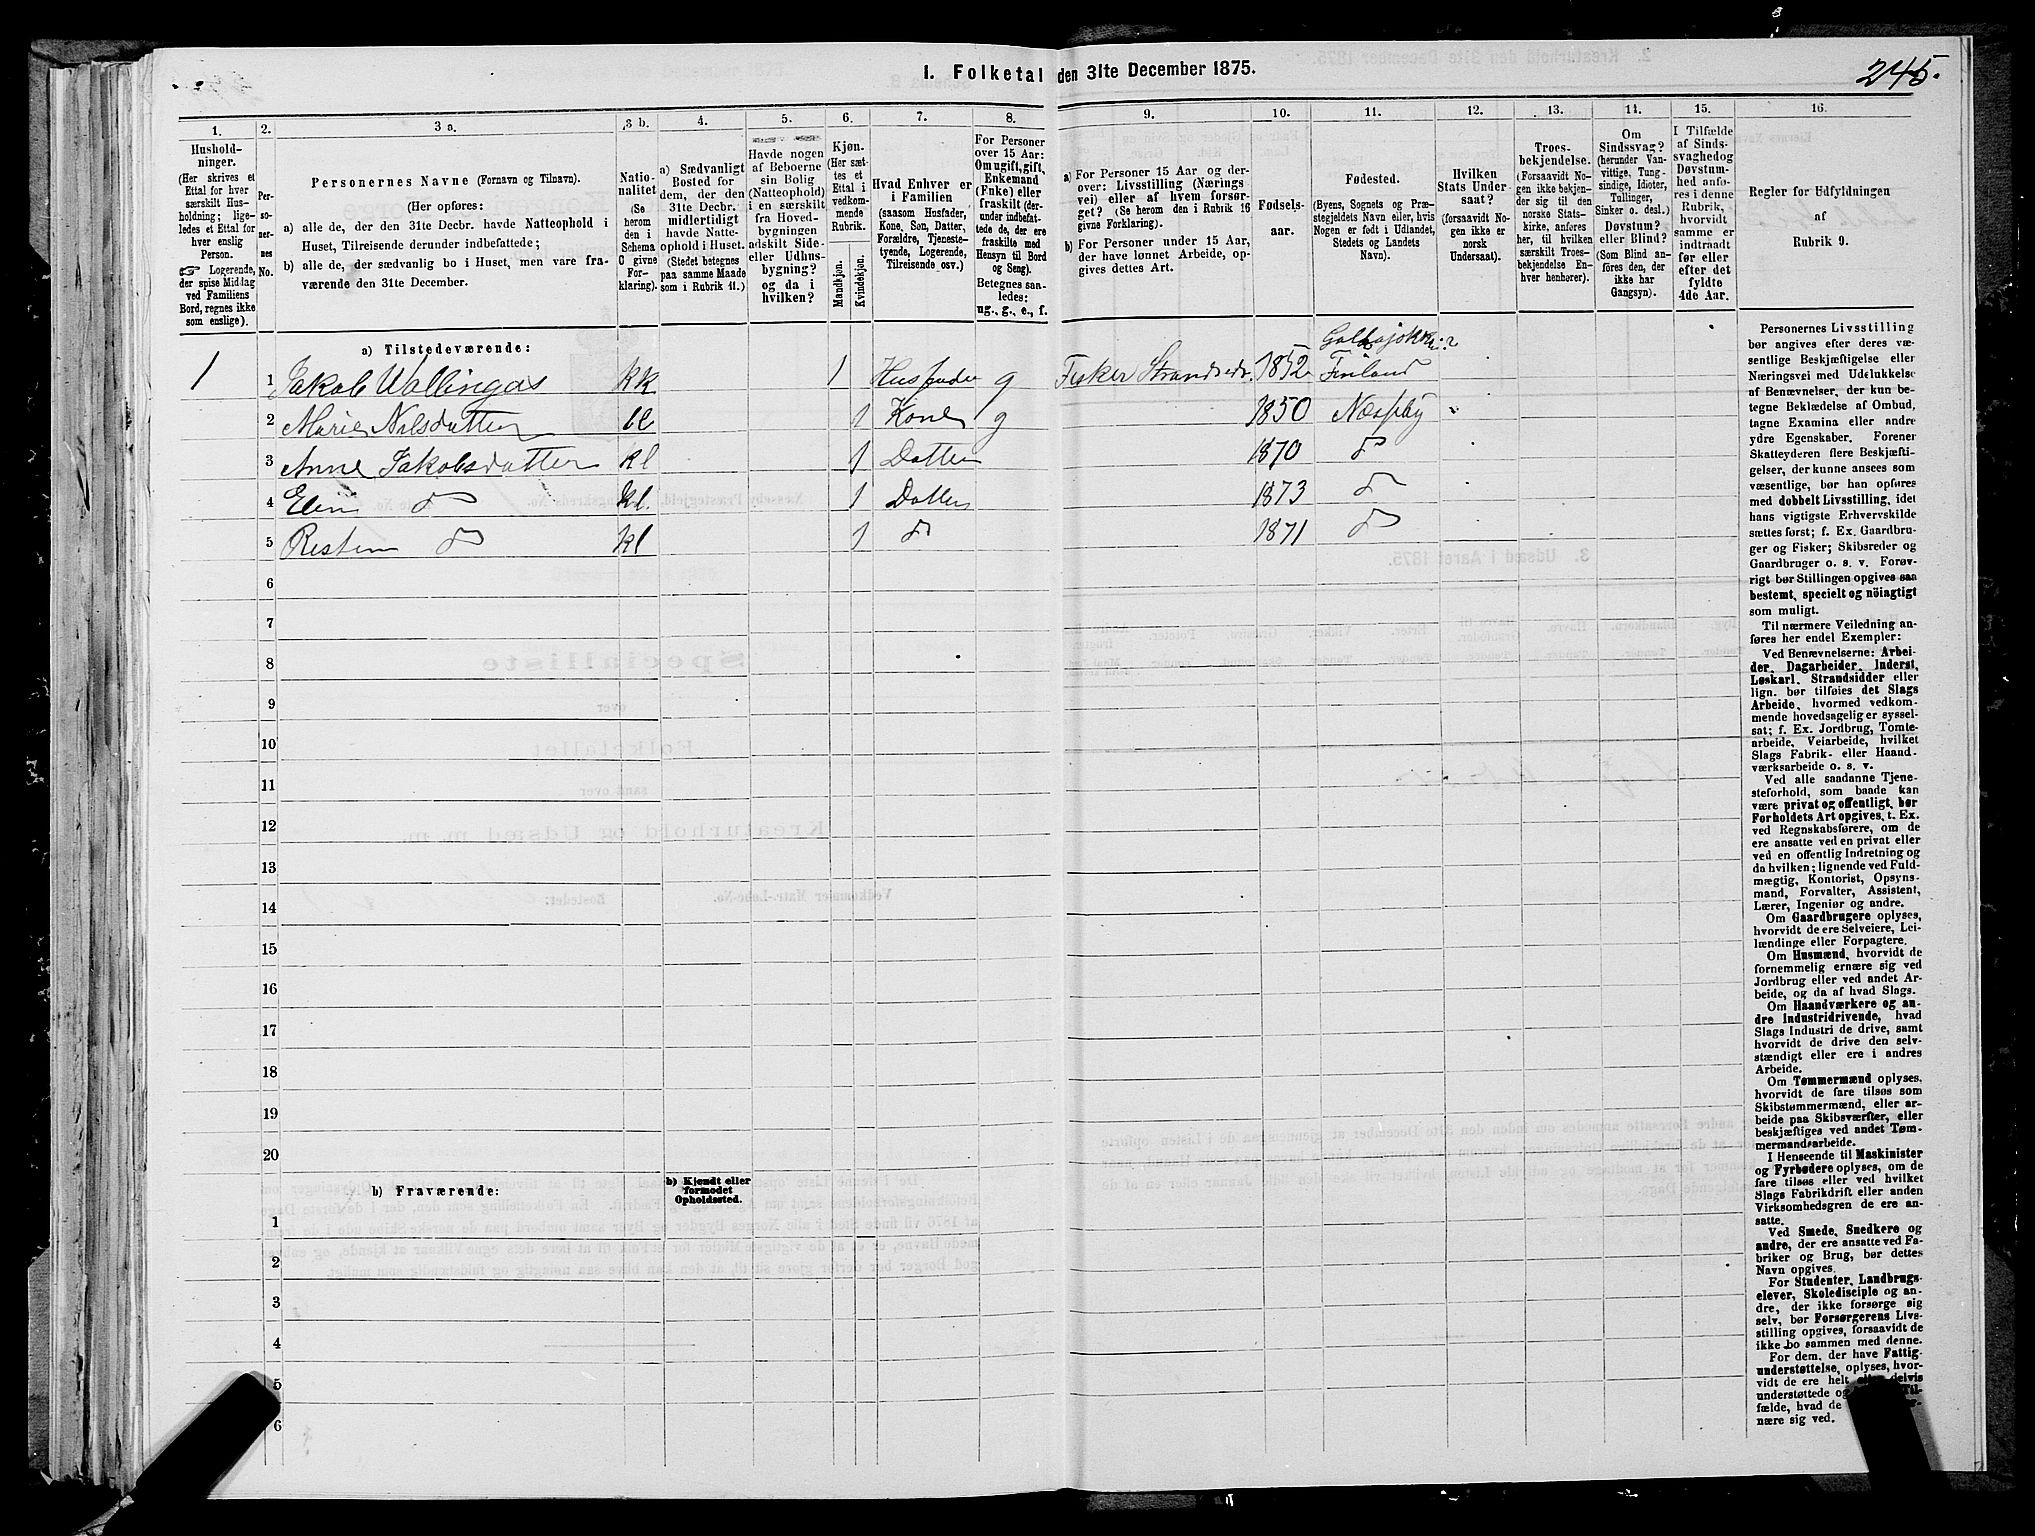 1. Folketal den 31te December 1875.
245.
1.
Hushold-
ninger.
(Her skrives et
Ettal for hver
særskilt Hus-
holdning; lige-
ledes et Ettal for
hver enslig
Person.
☞ Logerende,
der spise Middag
ved Familiens
Bord, regnes ikke
som enslige).
2.
Per-
so-
ner-
nes
No.
3 a.
Personernes Navne (Fornavn og Tilnavn).
(Her opføres:
a) alle de, der den 31te Decbr. havde Natteophold i
Huset, Tilreisende derunder indbefattede;
b) alle de, der sædvanlig bo i Huset, men vare fra-
værende den 31te December.
3 b.
Natio-
nalitet
(Se
herom
den i
Schema
C givne
For-
klaring).
4.
a) Sædvanligt
Bosted for
dem, der den
31te Decbr.
midlertidigt
havde Natte-
ophold i Huset.
(Stedet betegnes
paa samme Maade
som i Rubrik 11.)
5.
Havde nogen
af Beboerne
sin Bolig
(Natteophold)
i en særskilt
fra Hoved-
bygningen
adskilt Side-
eller Udhus-
bygning?
og da i
hvilken?
6.
Kjøn.
(Her sæt-
tes et
Ettal i
vedkom-
mende
Rubrik.
Mandkjøn.
Kvindekjøn.
7.
Hvad Enhver er
i Familien
(saasom Husfader,
Kone, Søn, Datter,
Forældre, Tjeneste-
tyende, Logerende,
Tilreisende osv.)
8.
For Personer
over 15 Aar:
Om ugift, gift,
Enkemand
(Enke) eller
fraskilt (der-
under indbefat-
tede de, der ere
fraskilte med
Hensyn til Bord
og Seng).
Betegnes saa-
ledes:
ug., g., e., f.
9.
a) For Personer 15 Aar og der-
over: Livsstilling (Nærings
vei) eller af hvem forsør-
get? (Se herom den i Rubrik 16
givne Forklaring).
b) For Personer under 15 Aar,
der have lønnet Arbeide, op-
gives dettes Art.
10.
Fødsels-
aar.
11.
Fødested.
(Byens, Sognets og Præ-
stegjeldets Navn eller, hvis
Nogen er født i Udlandet,
Stedets og Landets
Navn).
12.
Hvilken
Stats Under
saat?
(forsaavidt No-
gen ikke er
norsk
Undersaat).
13.
Troes-
bekjendelse.
(Forsaavidt No-
gen ikke bekjen-
der sig til den
norske Stats-
kirke, anføres
her, til hvilken
særskilt Troes-
bekjendelse En-
hver henhører).
14.
Om
Sindssvag?
(herunder Van-
vittige, Tung-
sindige, Idioter,
Tullinger,
Sinker o. desl.)
Døvstum?
eller Blind?
(Som Blind an-
føres den, der
ikke har
Gangsyn).
15.
I Tilfælde
af Sinds-
svaghed og
Døvstum-
hed anfø-
res i denne
Rubrik,
hvorvidt
samme er
indtraadt
før eller
efter det
fyldte
4de Aar.
16.
Regler for Udfyldningen
af
Rubrik 9.
a) Tilstedeværende:
1 1 Jakob Wallingas kk 1 Husfader g Fisker Strandsidr. 1852 Finland
2 Marie Nilsdatter kl 1 Kone g 1850 Næsseby
3 Anne Jakobsdatter kl 1 Datter 1870 do
4 Elin do kl. 1 Datter 1873 do
5 Risten do kl 1 do 1871 do
6
7
8
9
10
11
12
13
14
15
16
17
18
19
20
b) Fraværende:
b) Kjendt eller
formodet
Opholdssted.
1
2
3
4
5
6
Personernes Livsstilling
bør angives efter deres væ-
sentlige Beskjæftigelse eller
Næringsvei med Udelukkelse
af Benævnelser, der kun be-
tegne Beklædelse af Ombud,
tagne Examina eller andre
ydre Egenskaber. Forener
Skatteyderen flere Beskjæfti-
gelser, der kunne ansees som
væsentlige, bør han opføres
med dobbelt Livsstilling, idet
hans vigtigste Erhvervskilde
sættes først; f. Ex. Gaardbru-
ger og Fisker; Skibsreder og
Gaardbruger o. s. v. Forøv-
rigt bør Stillingen opgives saa
bestemt, specielt og nöiagtigt
som muligt.
Til nærmere Veiledning an-
føres her endel Exempler:
Ved Benævnelserne: Arbei-
der, Dagarbeider, Inderst,
Løskarl, Strandsidder eller
lign. bør tilføies det Slags
Arbeide, hvormed vedkom-
mende hovedsagelig er syssel-
sat; f. Ex. Jordbrug, Tomte-
arbeide, Veiarbeide, hvilket
Slags Fabrik- eller Haand-
værksarbeide o. s. v.
Ved alle saadanne Tjene-
steforhold, som baade kan
være privat og offentligt, bør
Forholdets Art opgives, t. Ex.
ved Regnskabsførere, om de
ere ansatte ved en privat eller
ved en offentlig Indretning og
da hvilken; lignende ved Fuld-
mægtig, Kontorist, Opsyns-
mand, Forvalter, Assistent,
Lærer, Ingeniør og andre.
Om Gaardbrugere oplyses,
hvorvidt de ere Selveiere, Lei-
lændinge eller Forpagtere.
Om Husmænd, hvorvidt de
fornemmelig ernære sig ved
Jordbrug eller ved andet Ar-
beide, og da af hvad Slags.
Om Haandværkere og an-
dre Industridrivende, hvad
Slags Industri de drive, samt
hvorvidt de drive den selv-
stændigt eller ere i andres
Arbeide.
Om Tømmermænd oplyses,
hvorvidt de fare tilsøs som
Skibstømmermænd, eller ar-
beide paa Skibsværfter, eller
beskjæftiges ved andet Tøm-
mermandsarbeide.
I Henseende til Maskinister
og Fyrbødere oplyses, om de
fare tilsøs eller ved hvilket
Slags Fabrikdrift eller anden
Virksomhedsgren de ere an-
satte.
Ved Smede, Snedkere og
andre, der ere ansatte ved Fa-
briker og Brug, bør dettes
Navn opgives.
For Studenter, Landbrugs-
elever, Skoledisciple og an-
dre, der ikke forsørge sig
selv, bør Forsørgerens Livs-
stilling opgives, forsaavidt de
ikke bo sammen med denne.
For dem, der have Fattig-
understøttelse, oplyses, hvor-
vidt de ere helt eller delvis
understøttede og
fælde, hvad de
nære sig ved.